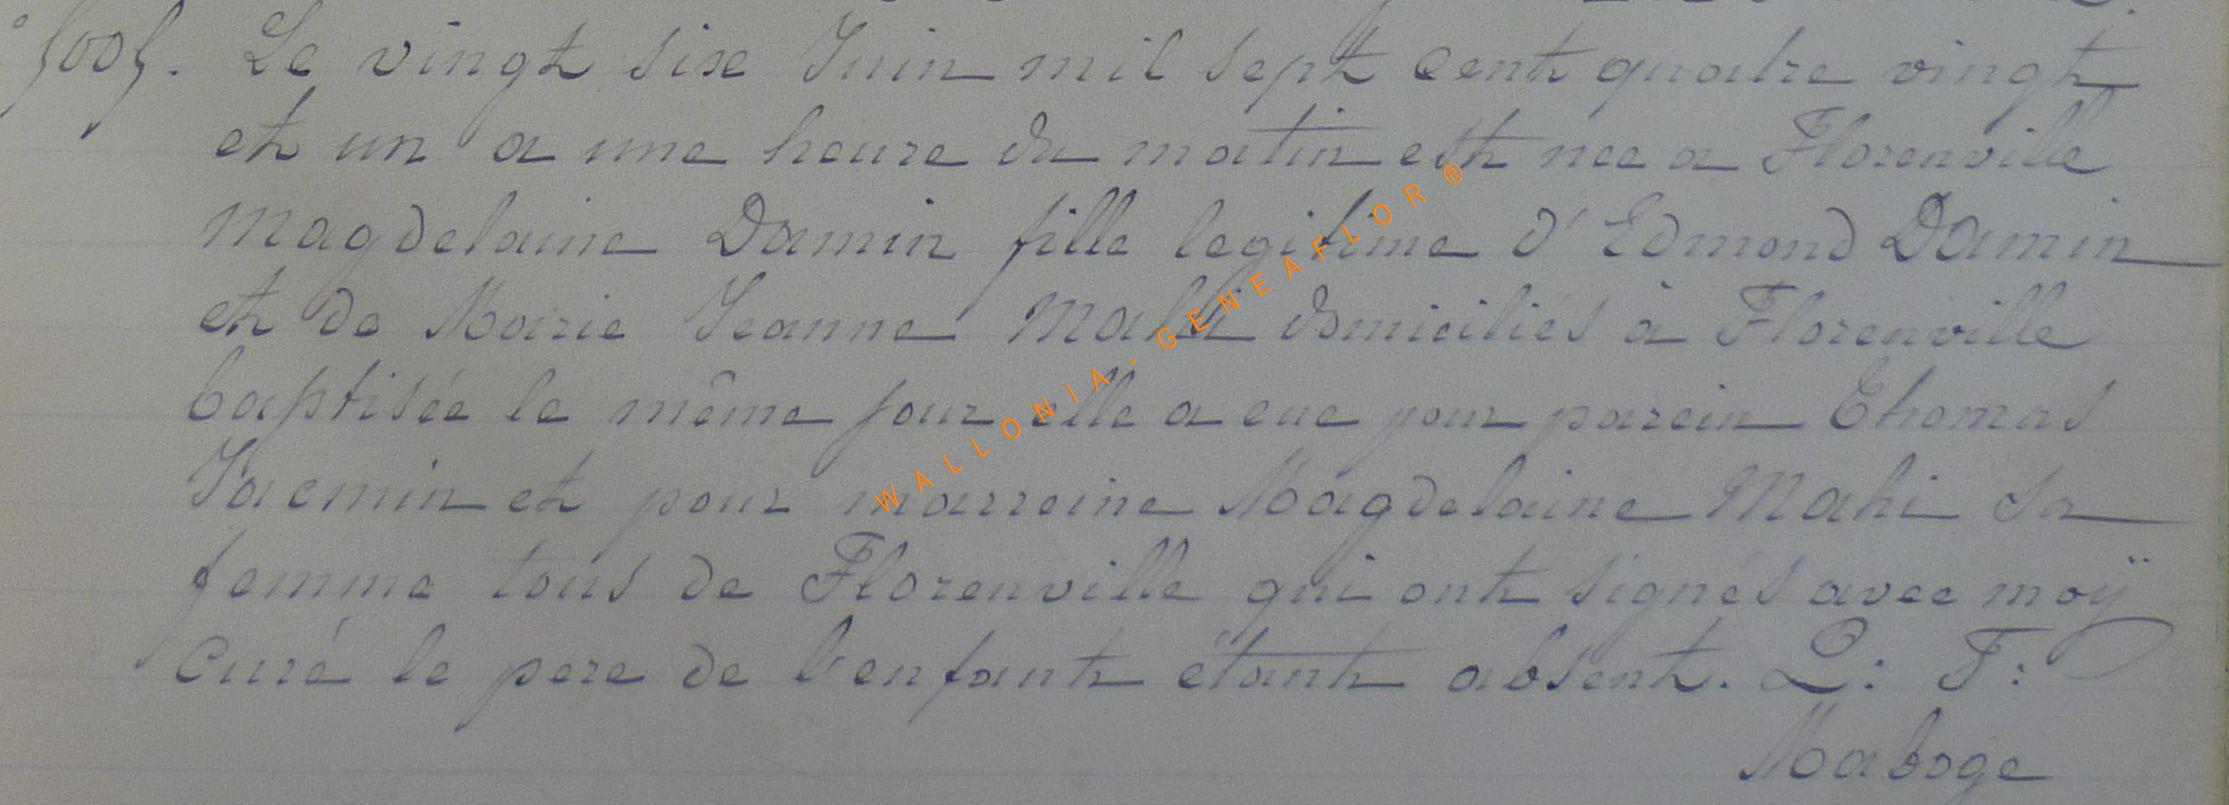 Le vingt six Juin mil sept cent quatre vingt
et un a une heure du matin est nee a Florenville
Magdelaine Damin fille legitime d'Edmond Damin
et de Marie Jeanne Mahi domiciliés à Florenville
baptisée le même jour elle a eue pour parein Thomas
Jacmin et pour marreine Magdelaine Mahi sa
femme tous de Florenville qui ont signés avec moÿ
Curé le pere de l'enfant étant absent. L: F:
Maboge
WALLONIA-GENEAFLOR®